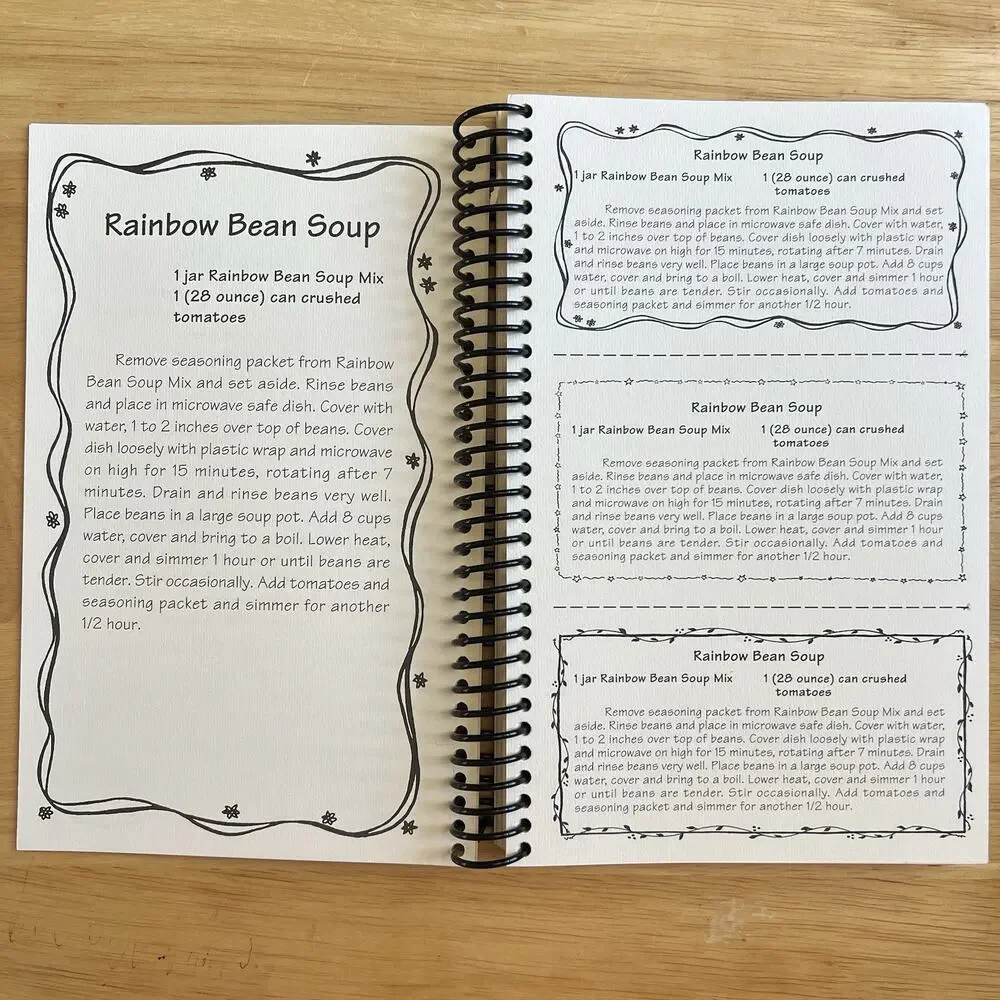 Rainbow Bean Soup
1 jar Rainbow Bean Soup Mix
1 (28 ounce) can crushed
tomatoes
Remove seasoning packet from Rainbow
Bean Soup Mix and set aside. Rinse beans
and place in microwave safe dish. Cover with
water, 1 to 2 inches over top of beans. Cover
dish loosely with plastic wrap and microwave
on high for 15 minutes, rotating after 7
minutes. Drain and rinse beans very well.
Place beans in a large soup pot. Add 8 cups
water, cover and bring to a boil. Lower heat,
cover and simmer 1 hour or until beans are
tender. Stir occasionally. Add tomatoes and
seasoning packet and simmer for another
1/2 hour.
Rainbow Bean Soup
1 jar Rainbow Bean Soup Mix 1 (28 ounce) can crushed
tomatoes
Remove seasoning packet from Rainbow Bean Soup Mix and set
aside. Rinse beans and place in microwave safe dish. Cover with water,
1 to 2 inches over top of beans. Cover dish loosely with plastic wrap
and microwave on high for 15 minutes, rotating after 7 minutes. Drain
and rinse beans very well. Place beans in a large soup pot. Add 8 cups
water, cover and bring to a boil. Lower heat, cover and simmer 1 hour
or until beans are tender. Stir occasionally. Add tomatoes and
seasoning packet and simmer for another 1/2 hour.
Rainbow Bean Soup
1 jar Rainbow Bean Soup Mix 1 (28 ounce) can crushed
tomatoes
Remove seasoning packet from Rainbow Bean Soup Mix and set
aside. Rinse beans and place in microwave safe dish. Cover with water,
1 to 2 inches over top of beans. Cover dish loosely with plastic wrap
and microwave on high for 15 minutes, rotating after 7 minutes. Drain
and rinse beans very well. Place beans in a large soup pot. Add 8 cups
water, cover and bring to a boil. Lower heat, cover and simmer 1 hour
or until beans are tender. Stir occasionally. Add tomatoes and
seasoning packet and simmer for another 1/2 hour.
Rainbow Bean Soup
1 jar Rainbow Bean Soup Mix 1 (28 ounce) can crushed
tomatoes
Remove seasoning packet from Rainbow Bean Soup Mix and set
aside. Rinse beans and place in microwave safe dish. Cover with water,
1 to 2 inches over top of beans. Cover dish loosely with plastic wrap
and microwave on high for 15 minutes, rotating after 7 minutes. Drain
and rinse beans very well. Place beans in a large soup pot. Add 8 cups
water, cover and bring to a boil. Lower heat, cover and simmer 1 hour
or until beans are tender. Stir occasionally. Add tomatoes and
seasoning packet and simmer for another 1/2 hour.